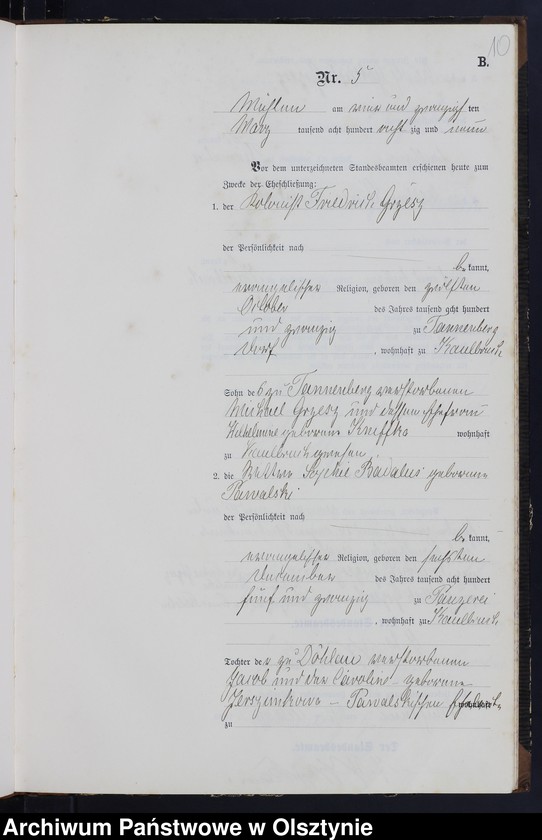 10
B.
Nr. 5
Mühlen am ein und zwanzigsten
März tausend acht hundert achtzig und neun
Vor dem unterzeichneten Standesbeamten erschienen heute zum
Zwecke der Eheschließung:
1. der Kolonist Friedrich Grzesz
der Persönlichkeit nach
bekannt,
evangelischer Religion, geboren den zwölften
October des Jahres tausend acht hundert
und zwanzig zu Tannenberg
Dorf, wohnhaft zu Kaulbruch
Sohn des zu Tannenberg verstorbenen
Michael Grzesz und dessen Ehefrau
Wilhelmine geborene wohnhaft
zu Kaulbruch gewesen
2. die Wittwe Sophie geborene
Pawalski
der Persönlichkeit nach
bekannt,
evangelischer Religion, geboren den sechsten
December des Jahres tausend acht hundert
fünf und zwanzig zu Panzerei
, wohnhaft zu Kaulbruch
Tochter der zu Döhlau verstorbenen
Jacob und der Caroline geborene
– Pawalskischen wohnhaft
zu
Archiwum Państwowe w Olsztynie